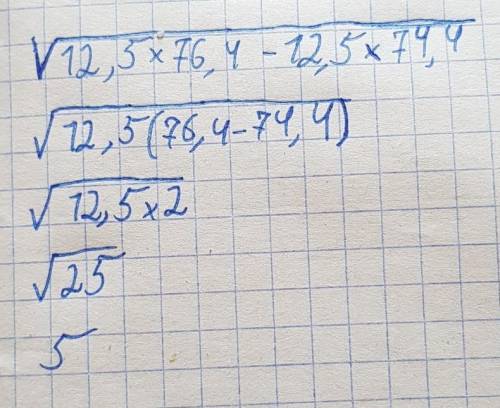 √12,5×76,4-12,5×74,4
√12,5(76,4-74,4)
√12,5×2
√25
5